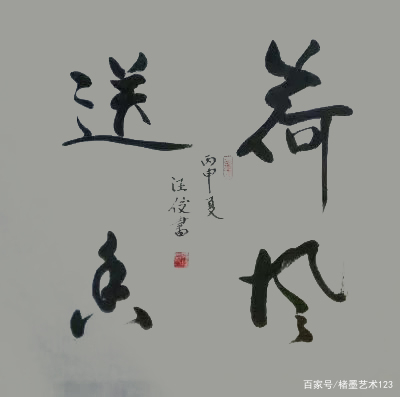 荷风
送香
丙申夏
汪俊書
百家号/楮墨艺术123